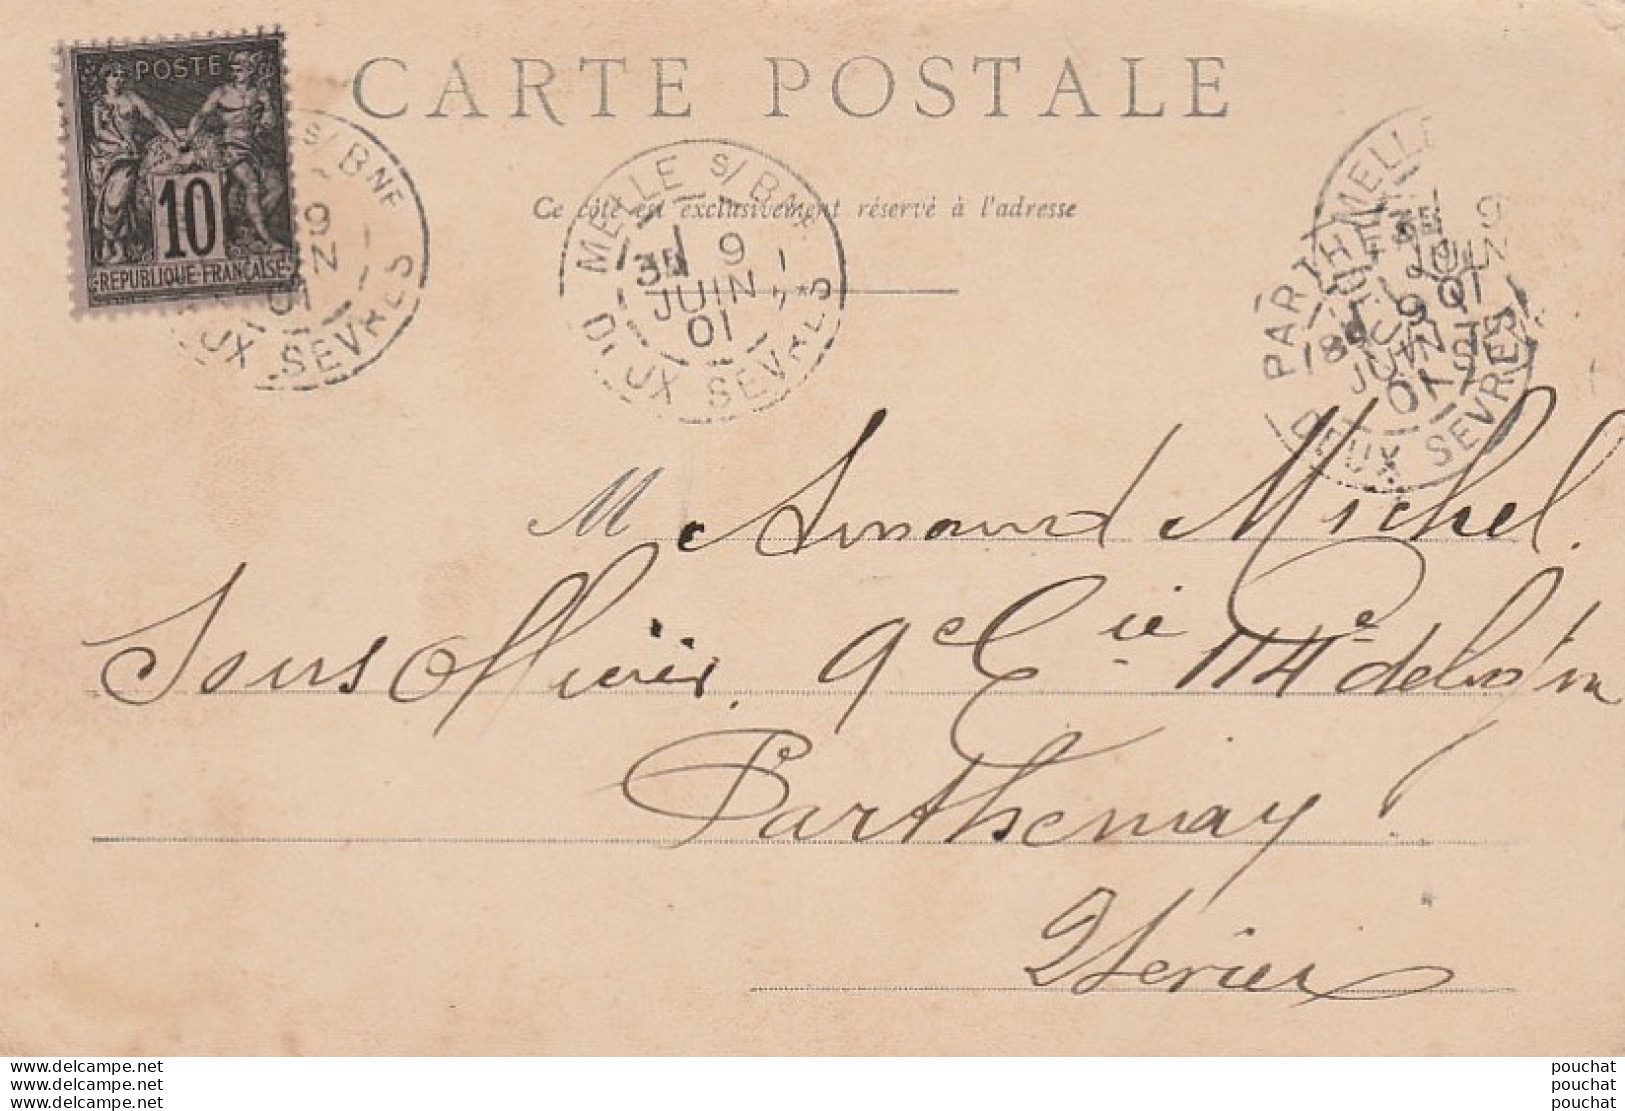 POSTE
10
REPUBLIQUE FRANÇAISE
CARTE POSTALE
S/ BNE
9
01
DEUX SEVRES
MELLE S/ BNE
3E 9
JUIN
01
DEUX SEVRES
MELLE
3E 9
JUIN
01
PARTHENAY
9
JUIN
01
DEUX SEVRES
Ce côté est exclusivement réservé à l'adresse
M Armand Michel.
Sous Officier 9e Cie 114e de ligne
Parthenay
2 Sèvres
www.delcampe.net
www.delcampe.net
www.delcampe.net
pouchat
pouchat
pouchat